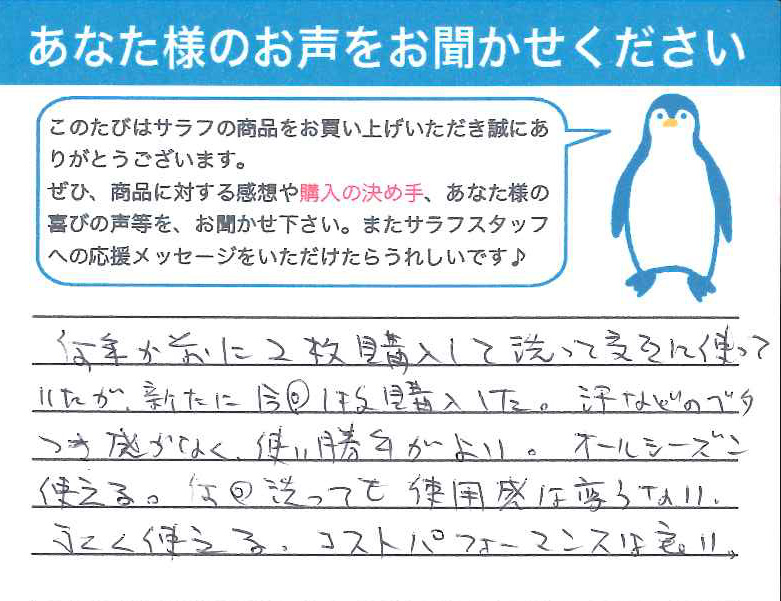 あなた様のお声をお聞かせください
このたびはサラフの商品をお買い上げいただき誠にあ
りがとうございます。
ぜひ、商品に対する感想や購入の決め手、あなた様の
喜びの声等を、お聞かせ下さい。またサラフスタッフ
への応援メッセージをいただけたらうれしいです♪
何年か前に2枚購入して洗って交互に使って
いたが、新たに今回1枚購入した。汗などのベタ
つき感がなく、使い勝手がよい。オールシーズン
使える。何回洗っても使用感は変らない。
永く使える。コストパフォーマンスは高い。